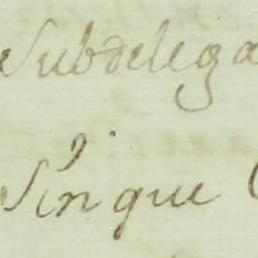 Subdelega
Sin que